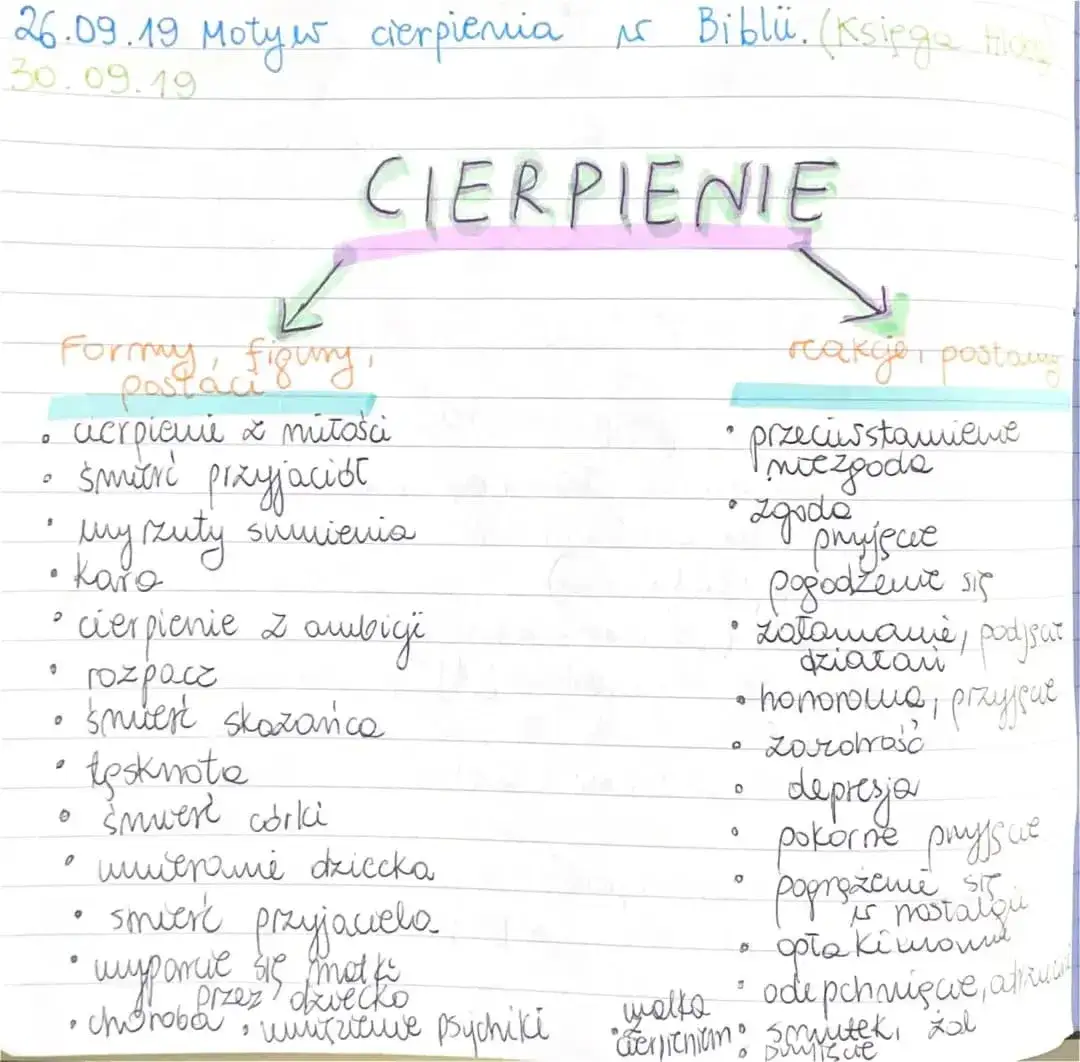 26.09.19 Motyw cierpienia w Biblii. (Księga Hioba)
30.09.19
CIERPIENIE
Formy, figury,
postaci
• cierpienie z miłości
• śmierć przyjaciół
• wyrzuty sumienia
• kara
• cierpienie z ambicji
• rozpacz
• śmierć skazańca
• tęsknota
• śmierć córki
• umieranie dziecka
• śmierć przyjaciela
• wyparcie się matki
przez dziecko
• choroba • psychiki
reakcje, postawy
• przeciwstawienie
niezgoda
• zgoda
przyjęcie
pogodzenie się
• załamanie, podjęcie
działań
• honorowe, przyjęcie
• zazdrość
• depresja
• pokorne przyjęcie
• pogrążenie się
w nostalgii
• opłakiwanie
• odepchnięcie, odrzucenie
• smutek, żal
• przyjęcie
• walka
z
cierpieniem